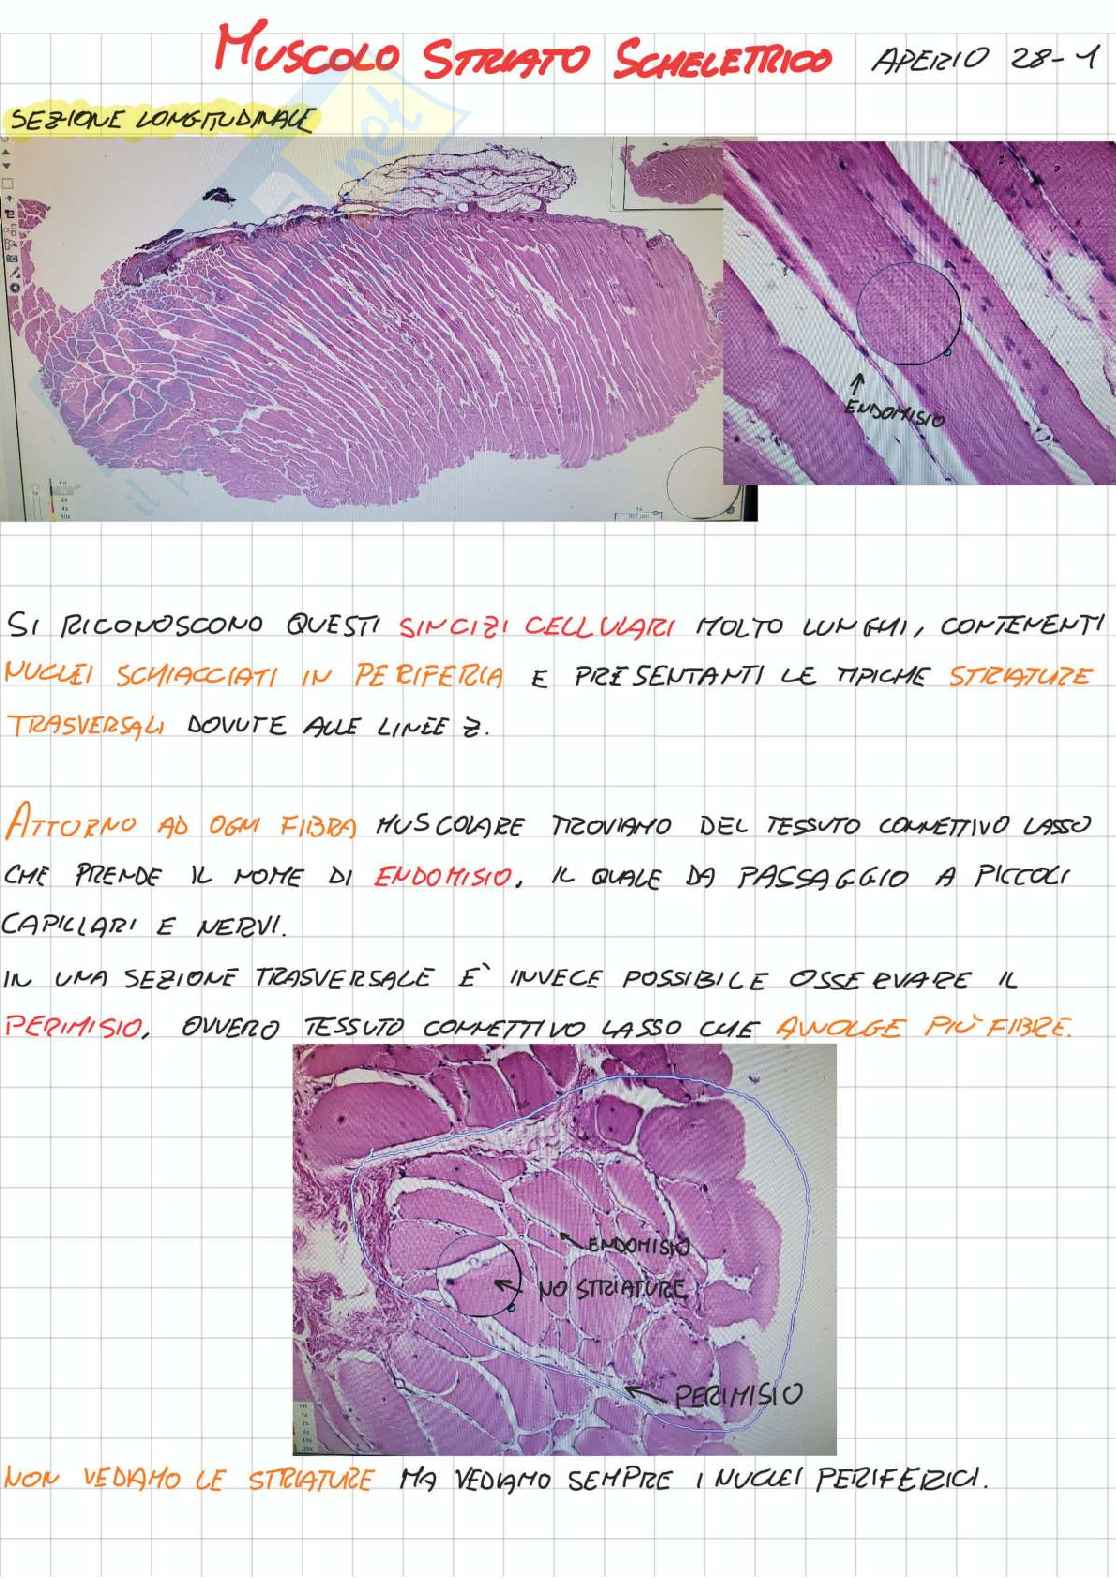 MUSCOLO STRIATO SCHELETRICO APERIO 28-1
SEZIONE LONGITUDINALE
net
ENDOMISIO
SI RICONOSCONO QUESTI SINCIZI CELLULARI MOLTO LUNGHI, CONTENENTI
NUCLEI SCHIACCIATI IN PERIFERIA E PRESENTANTI LE TIPICHE STRIATURE
TRASVERSALI DOVUTE ALLE LINEE Z.
ATTORNO AD OGNI FIBRA MUSCOLARE TROVIAMO DEL TESSUTO CONNETTIVO LASSO
CHE PRENDE IL NOME DI ENDOMISIO, IL QUALE DA PASSAGGIO A PICCOLI
CAPILLARI E NERVI.
IN UNA SEZIONE TRASVERSALE E` INVECE POSSIBILE OSSERVARE IL
PERIMISIO, OVVERO TESSUTO CONNETTIVO LASSO CHE AVVOLGE PIÙ FIBRE.
ENDOMISIO
NO STRIATURE
PERIMISIO
NON VEDIAMO LE STRIATURE MA VEDIAMO SEMPRE I NUCLEI PERIFERICI.